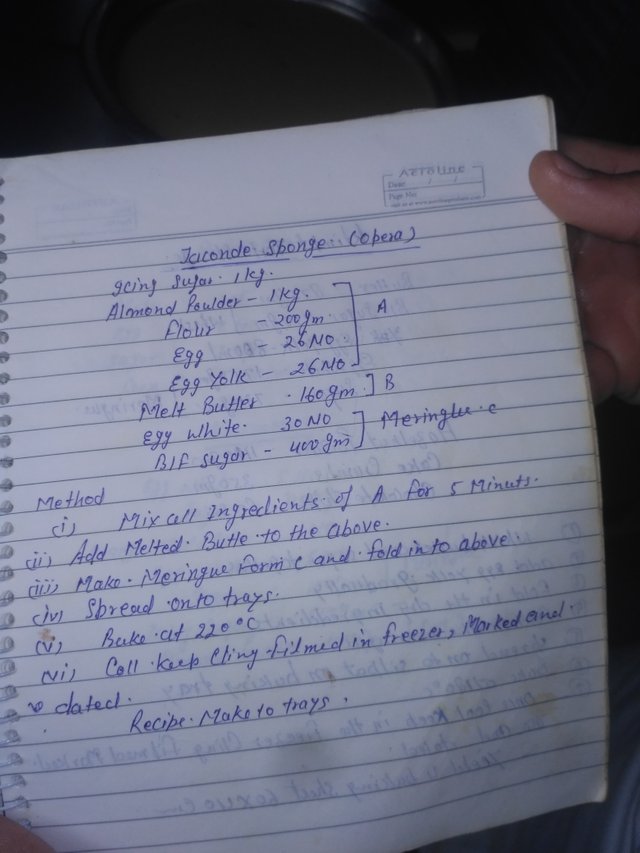 AEROLINE
Date: / /
Page No:
Jaconde Sponge (Opera)
gcing Sugar. 1kg.
Almond Poulder - 1kg.
flour - 200gm.
Egg 26 NO
A
Egg Yolk - 26 NO
Melt Butter . 160gm ] B
Egg White. 30 NO
B/F sugar - 400gm
Meringue c
Method
(i) Mix all Ingredients of A for 5 Minuts.
(ii) Add Melted. Butte to the above.
(iii) Make. Meringue Form C and fold in to above.
(iv) Spread onto trays.
(v) Bake at 220°C
(vi) Coll keep Cling filmed in freezer, Marked and.
dated.
Recipe. Make to trays.